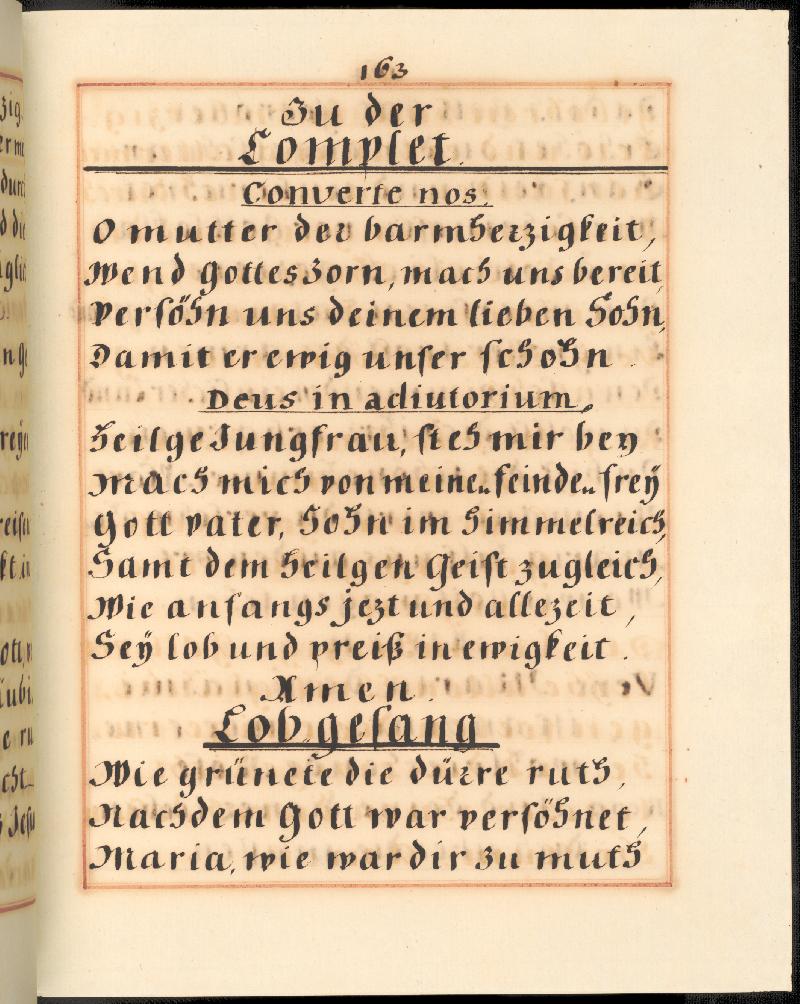 163
Zu der
Complet.
Converte nos.
O mutter der barmherzigkeit,
Wend Gottes zorn, mach uns bereit,
Versöhn uns deinem lieben Sohn,
Damit er ewig unser schohn.
Deus in adiutorium,
Heilge Jungfrau, steh mir bey
Mach mich von meine.. feinde.. frey
Gott vater, Sohn im Himmelreich,
Samt dem Heilgen Geist zugleich,
Wie anfangs jezt und allezeit,
Sey lob und preiß in ewigkeit.
Amen.
Lobgesang
Wie grünete die dürre ruth,
Nachdem Gott war versöhnet,
Maria, wie war dir zu muth